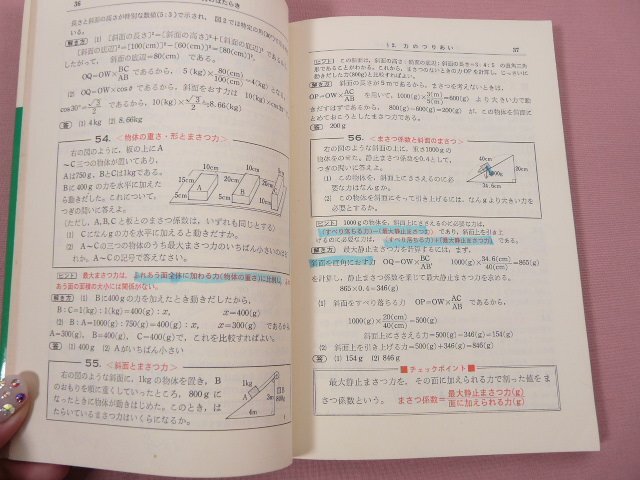 36
力のはたらき
長さと斜面の長さが特別な数値(5：3)で示され，図2では特定の角
いる。
解き方 (1) [斜面の長さ]²=[斜面の高さ]²+[斜面の底辺]²である
[斜面の底辺]²=[100(cm)]²−[60(cm)]²=[80(cm)]²
したがって， 斜面の底辺=80(cm) である。
OQ=OW×BC/AB であるから， 5(kg)×80(cm)/100(cm)=4(kg) となる。
(2) OQ=OW×cosθ であるから， 斜面をおす力は 10(kg)×cos30°
cos30°=√3/2 であるから， 10(kg)×√3/2≒8.66(kg)
答 (1) 4kg (2) 8.66kg
54. <物体の重さ・形とまさつ力>
右の図のように，板の上にA
～C三つの物体が置いてあり，
Aは750g，BとCは1kgである。
Bに400gの力を水平に加えた
ら動きだした。これについて，
つぎの問いに答えよ。
10cm
20cm
10cm
15cm
5cm
A
B
(ただし，A,B,Cと板とのまさつ係数は，いずれも同じとする)
(1) Cになんgの力を水平に加えると動きだすか。
(2) A～Cの三つの物体のうち最大まさつ力のいちばん小さいのはど
れか。A～Cの記号で答えなさい。
ヒント 最大まさつ力は， ふれあう面全体に加わる力(物体の重さ)に比例し，
あう面の面積の大小には関係がない。
解き方 (1) Bに400gの力を加えたとき動きだしたから，
B：C=1(kg)：1(kg)=400(g)：x, x=400(g)
(2) B：A=1000(g)：750(g)=400(g)：x, x=300(g) であるから
A=300(g)， B=400(g)， C=400(g)で， これを比較すればよい。
答 (1) 400g (2) Aがいちばん小さい
55. <斜面とまさつ力>
右の図のような斜面に，1kgの物体を置き，
のおもりを順に重くしていったところ，800gに
なったときに物体が動きはじめた。このとき，は
たらいているまさつ力はいくらになるか。
B
5m
3m
4m
A
12. 力のつりあい
37
ヒント この斜面は，斜面の高さ：斜面の底辺：斜面の長さ=3：4：5 の直角三角
形であることがわかる。これから，まさつのないときの力OPを計算し，じっさいに
動きだした力(800g)と比較すればよい。
解き方 斜面の長さが5mであるから，まさつを考えないときは，
OP=OW×AC/AB を用いて，1000(g)×3(m)/5(m)=600(g) より大きい力で動
きだすはずであるから， 800(g)−600(g)=200(g) が，この物体を斜面に
とめておこうとしたまさつ力である。
答 200g
56. <まさつ係数と斜面のまさつ>
右の図のような斜面の上に，重さ1000gの
物体をのせた。静止まさつ係数を0.4として，
つぎの問いに答えよ。
(1) この物体を，斜面上にささえるのに必
要な力はなんgか。
(2) この物体を斜面にそって引き上げるには，なんgより大きい力を
必要とするか。
40cm
20cm
34.6cm
ヒント 1000gの物体を，斜面上にささえるのに必要な力は，
(すべり落ちる力)−(最大静止まさつ) であり，斜面を引き上
げるのに必要な力は， (すべり落ちる力)+(最大静止まさつ力) である。
解き方 最大静止まさつ力を計算するには，まず，
斜面を直角におす力 OQ=OW×BC/AB， 1000(g)×34.6(cm)/40(cm)=865(g)
を計算し，静止まさつ係数を乗じて最大静止まさつ力を求める。
865×0.4≒346(g)
(1) 斜面をすべり落ちる力 OP=OW×AC/AB であるから，
1000(g)×20(cm)/40(cm)=500(g)
斜面上にささえる力=500(g)−346(g)=154(g)
(2) 斜面上を引き上げる力=500(g)+346(g)=846(g)
答 (1) 154g (2) 846g
■チェックポイント■
最大静止まさつ力を，その面に加えられる力で割った値をま
さつ係数という。 まさつ係数=最大静止まさつ力(g)/面に加えられる力(g)